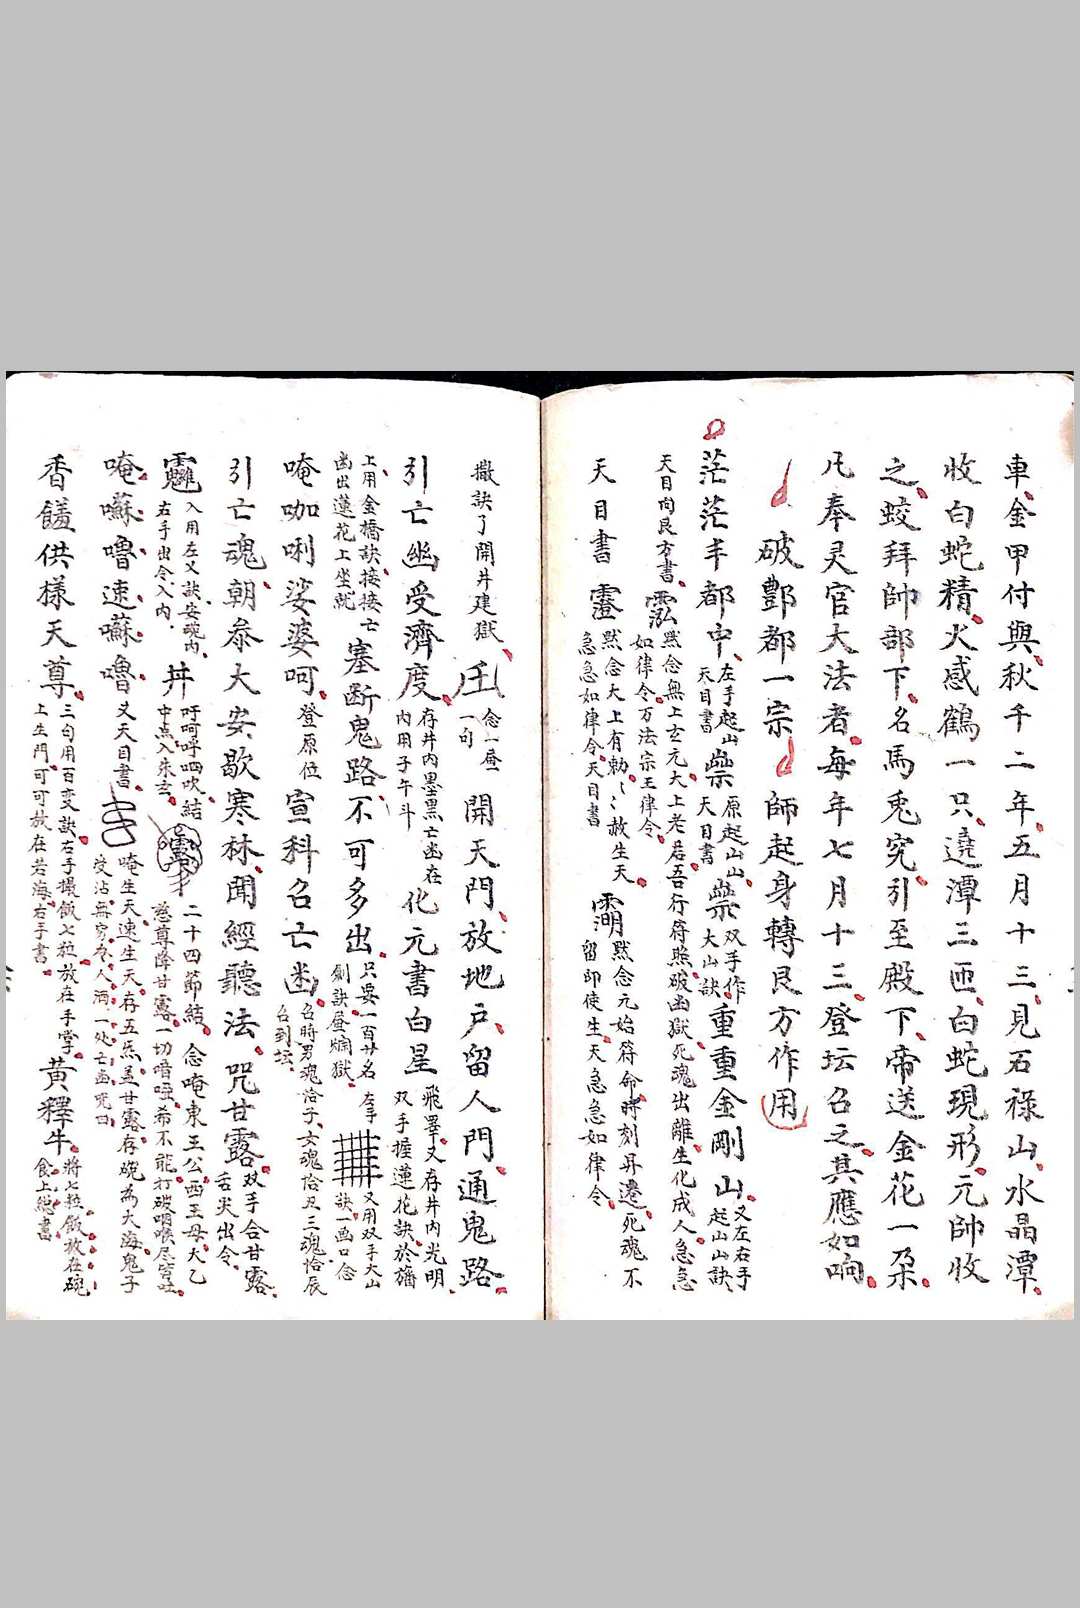 車金甲付與秋千二年五月十三見石祿山水晶潭
收白蛇精火感鶴一只遶潭三匝白蛇現形元帥收
之蛟拜帥部下名馬兎究引至殿下帝送金花一朶
凡奉灵官大法者每年七月十三登坛召之其應如响
破酆都一宗 師起身轉艮方作用
茫茫丰都中
左手起山
天目書
原起山山
天目書
双手作
大山訣
重重金剛山
又左右手
起山山訣
天目向艮方書
默念無上玄元大上老君吾行符照破幽獄死魂出離生化成人急急
如律令万法宗王律令
天目書
默念大上有勅赦生天
急急如律令天目書
默念元始符命時刻昇遷死魂不
留即使生天急急如律令
撒訣了開井建獄
念一
一句
開天門放地户留人門通鬼路
引亡幽受濟度
存井内墨黑亡幽在
内用子午斗
化元書白星
飛罩又存井内光明
双手握蓮花訣於旛
上用金橋訣接接亡
幽出蓮花上坐就
塞断鬼路不可多出
只要一百廿名
劍訣
獄
左手
又用双手大山
訣一画口念
唵咖唎娑婆呵
登原位
宣科召亡幽
召時男魂恰子女魂恰丑三魂恰辰
台到坛
引亡魂朝叅大安歇寒林聞經聽法 咒甘露
双手合甘露
舌尖出令
入用左又訣安魂内
右手出令入内
丼
吁呵呼呬吹結
中点入朱玄
二十四節結念唵東王公西王母大乙
慈尊降甘露一切喑啞希不能打破咽喉
唵囌嚕速囌嚕
又天目書
唵生天速生天存五炁盖甘露存碗為大海鬼子
受沾無穷
人洒一処亡幽咒曰
香饈供樣天尊
三句用百变訣右手撮飯七粒放在手掌
上生門可可放在若海右手書
黄釋牛
將七粒飯放在碗
食上總書